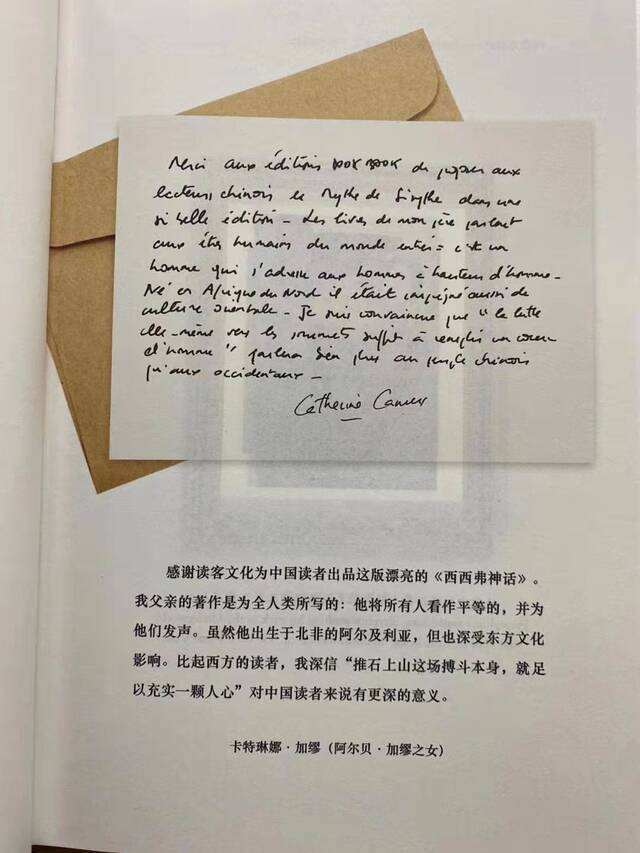 Merci aux éditions DOOK BOOK de proposer aux
lecteurs chinois le Mythe de Sisyphe dans une
si belle édition - Les livres de mon père parlent
aux êtres humains du monde entier = c'est un
homme qui s'adresse aux hommes à hauteur d'homme -
Né en Afrique du Nord il était imprégné aussi de
culture orientale - Je suis convaincue que "la lutte
elle-même vers les sommets suffit à remplir un cœur
d'homme" parlera bien plus au peuple chinois
qu'aux occidentaux -
Catherine Camus
感谢读客文化为中国读者出品这版漂亮的《西西弗神话》。
我父亲的著作是为全人类所写的：他将所有人看作平等的，并为
他们发声。虽然他出生于北非的阿尔及利亚，但也深受东方文化
影响。比起西方的读者，我深信“推石上山这场搏斗本身，就足
以充实一颗人心”对中国读者来说有更深的意义。
卡特琳娜·加缪（阿尔贝·加缪之女）